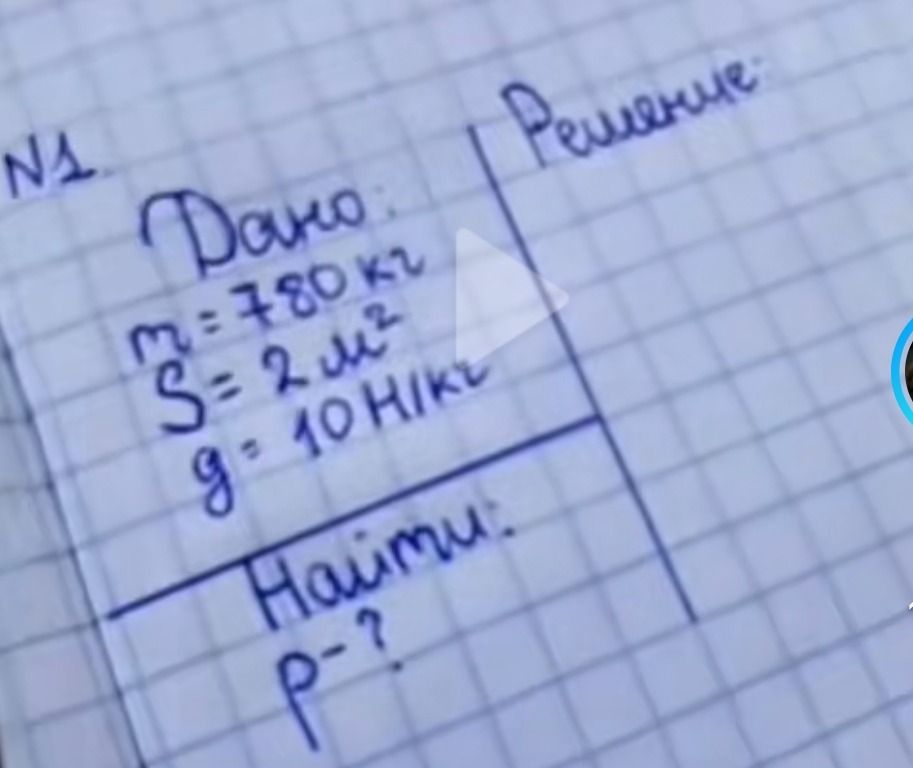 N1.
Дано:
m = 780 кг
S = 2 м²
g = 10 Н/кг
Найти:
p - ?
Решение: